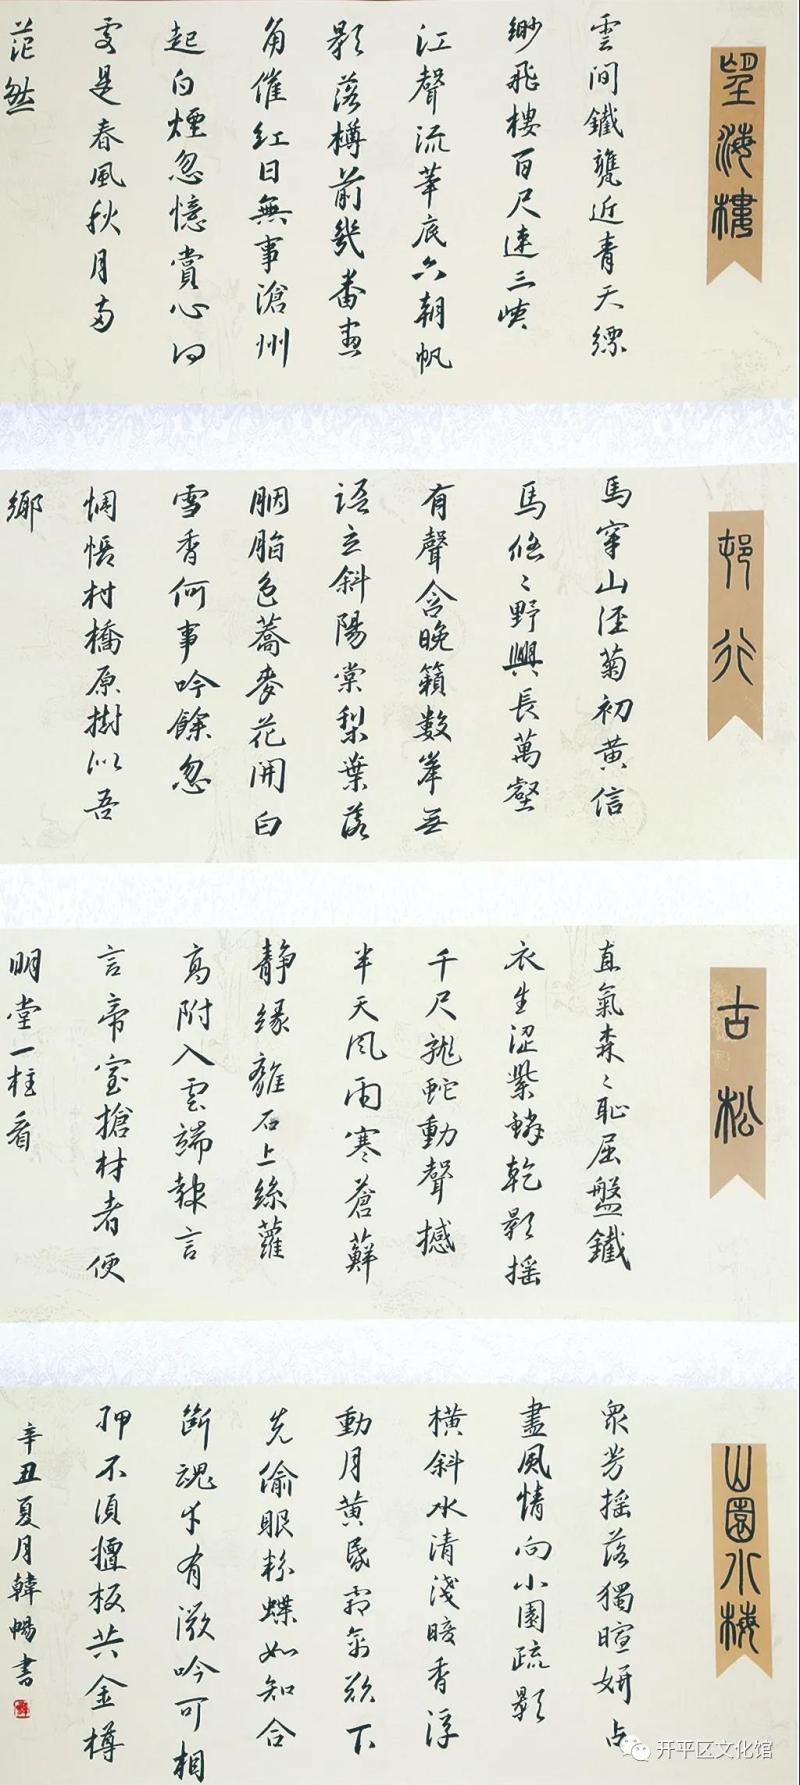 望海樓
雲間鐵甕近青天縹
緲飛樓百尺連三峽
江聲流筆底六朝帆
影落樽前幾番畫
角催紅日無事滄州
起白煙忽憶賞心何
處是春風秋月兩
茫然
邨行
馬穿山徑菊初黃信
馬悠々野興長萬壑
有聲含晚籟數峯無
語立斜陽棠梨葉落
胭脂色蕎麥花開白
雪香何事吟餘忽
惆悵村橋原樹似吾
鄉
古松
直氣森々恥屈盤鐵
衣生澀紫鱗乾影搖
千尺龍蛇動聲撼
半天風雨寒蒼蘚
靜緣離石上絲蘿
高附入雲端報言
言帝室搶材者便
明堂一柱看
山園小梅
衆芳搖落獨暄妍占
盡風情向小園疏影
橫斜水清淺暗香浮
動月黃昏霜禽欲下
先偷眼粉蝶如知合
斷魂幸有微吟可相
狎不須檀板共金樽
辛丑夏月韓暢書
开平区文化馆